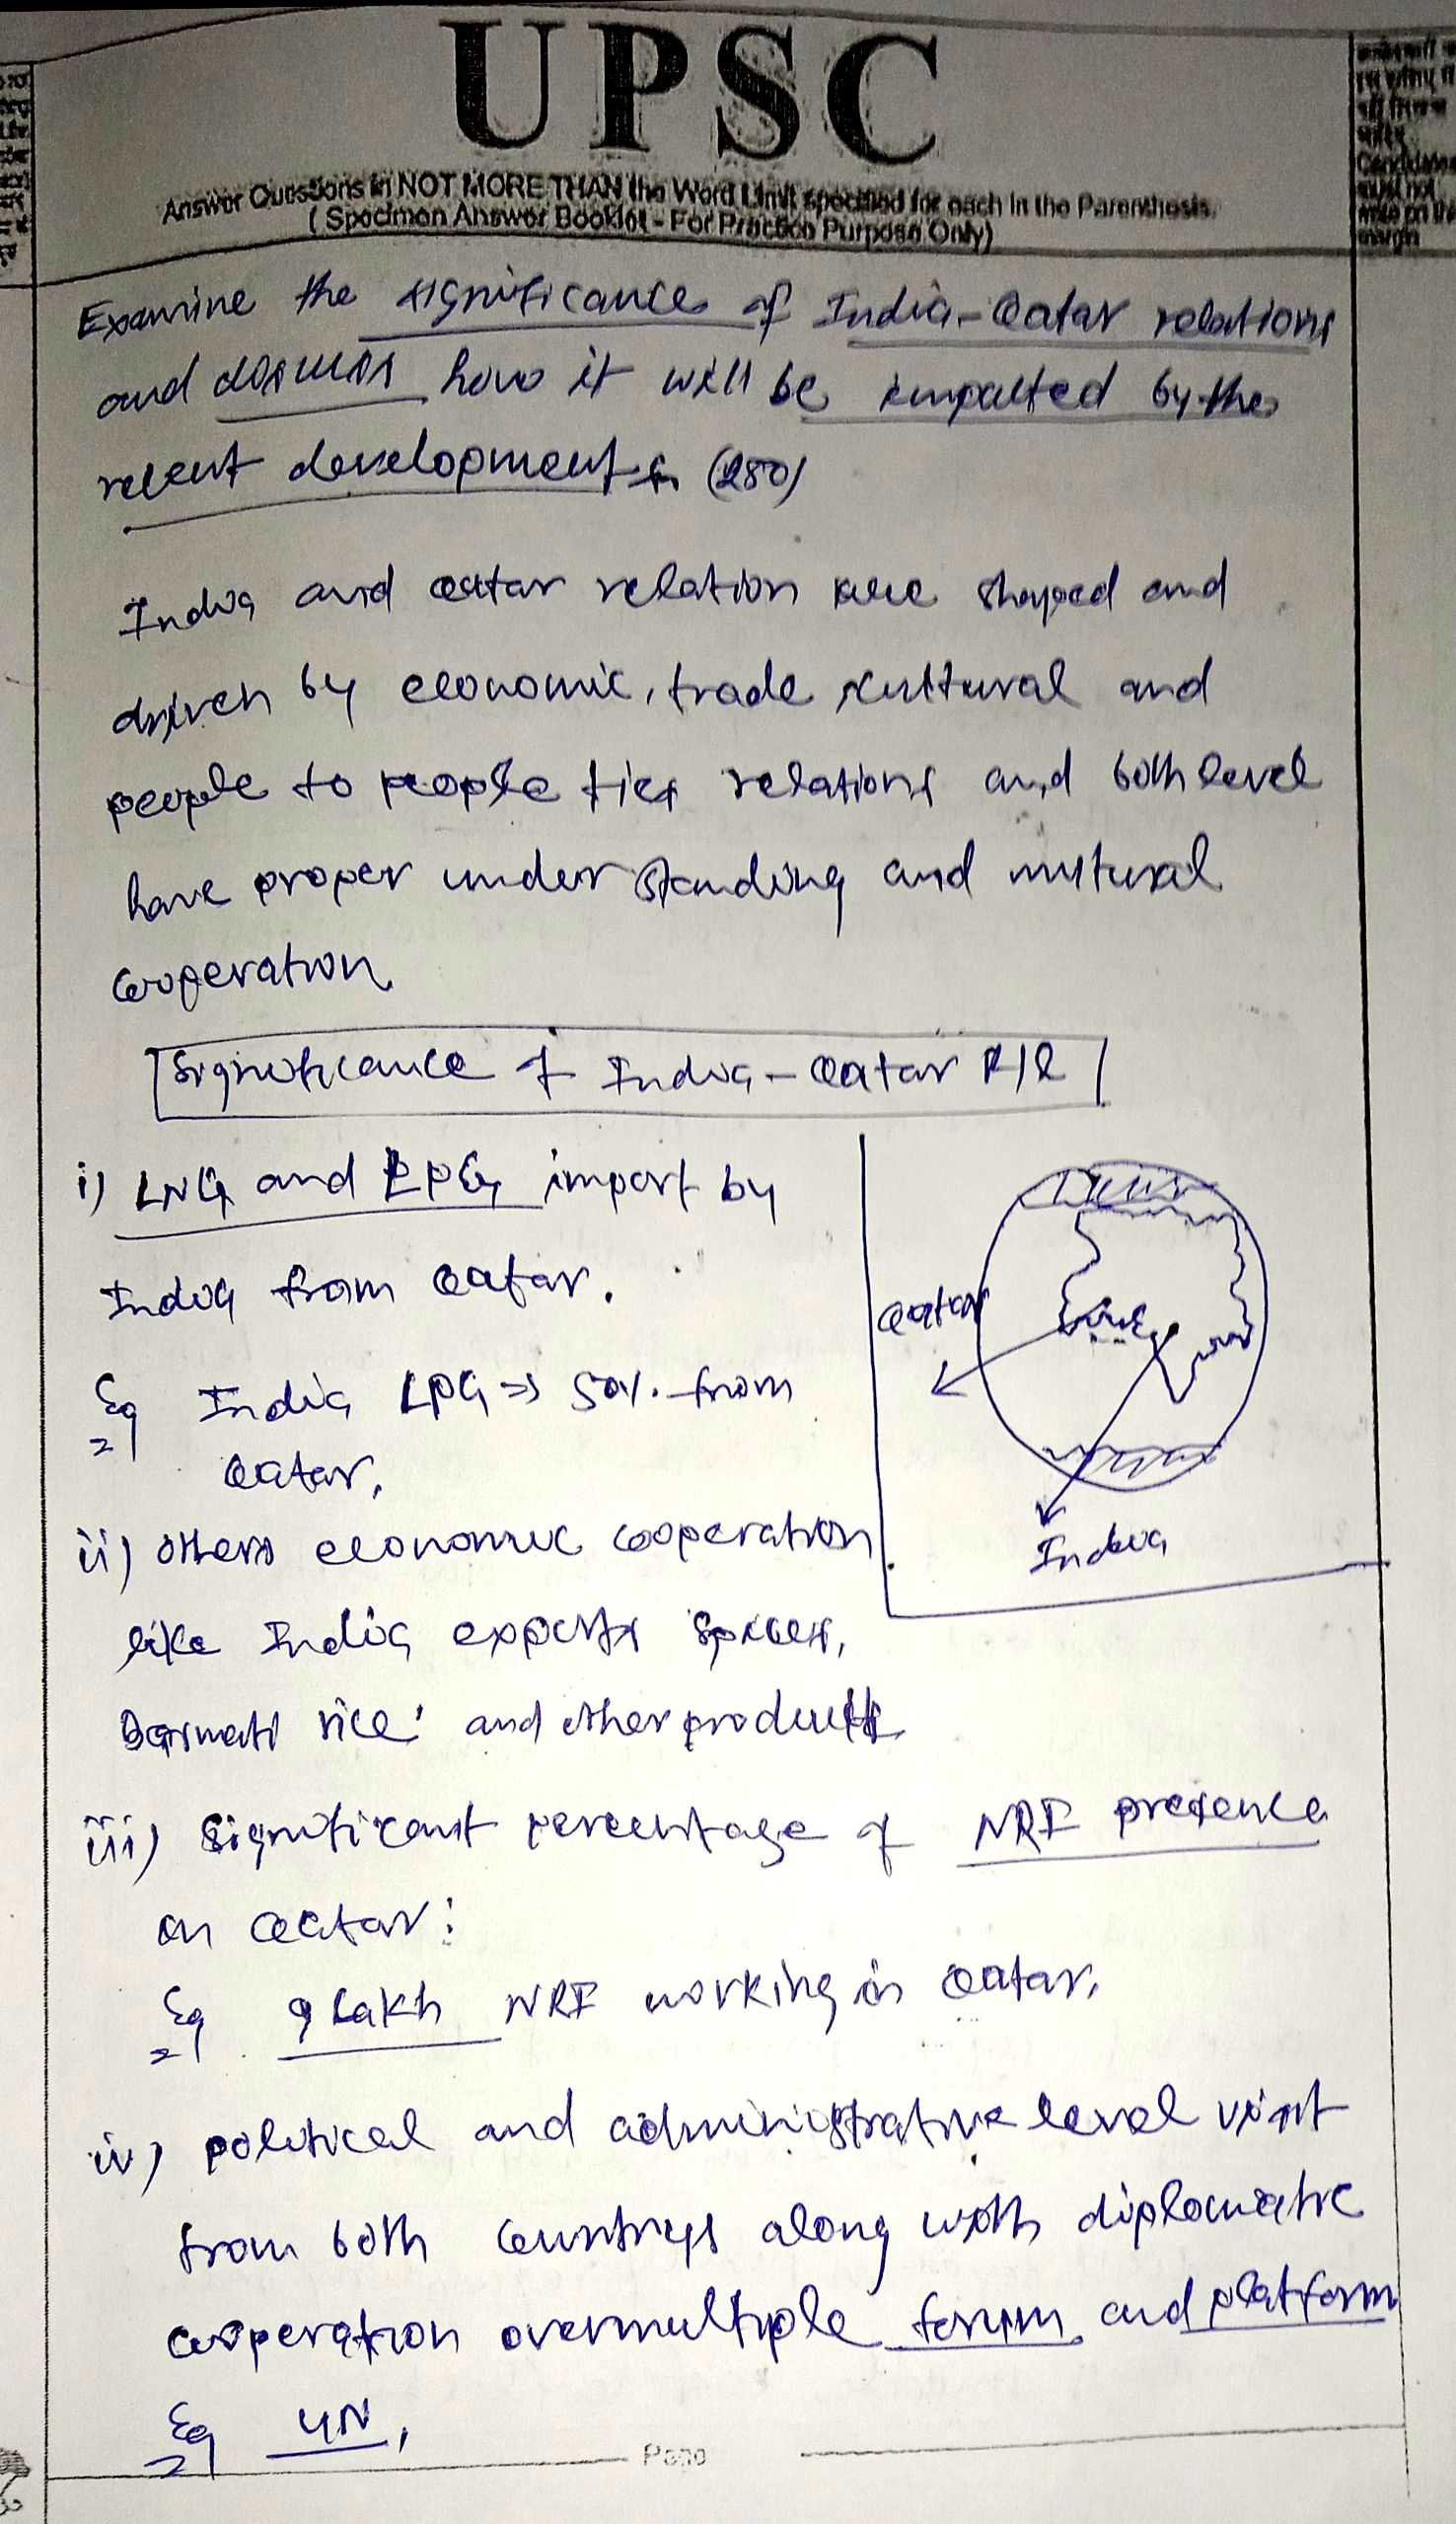 UPSC
Answer Questions in NOT MORE THAN the Word Limit specified for each in the Parenthesis.
( Specimen Answer Booklet - For Practice Purpose Only)
Candidates
must not
write on the
margin
Examine the significance of India-Qatar relations
and discuss how it will be impacted by the
recent developments. (250)
India and Qatar relation are shaped and
driven by economic, trade cultural and
people to people ties relations and both level
have proper understanding and mutural
cooperation.
Significance of India - Qatar R/R
i) LNG and LPG import by
India from Qatar.
Eg India LPG => 50%. from
Qatar.
Qatar
India
ii) others economic cooperation
like India exports spices,
Basmati rice' and other products
iii) Significant percentage of NRI presence
on Qatar:
Eg 9 Lakh NRI working in Qatar.
iv) political and administrative level visit
from both countrys along with diplomatic
cooperation over multiple forum and platform
Eg UN,
Page